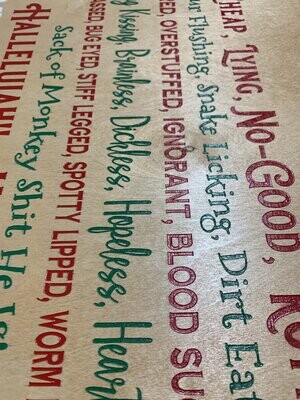 HEAP, LYING, NO-GOOD, ROT
ur Flushing, Snake Licking, Dirt Eat
ED, OVERSTUFFED, IGNORANT, BLOOD SU
g Kissing, Brainless, Dickless, Hopeless, Heart
ASSED, BUG EYED, STIFF LEGED, SPOTTY LIPPED, WORM
Sack of Monkey Shit He Is!
HALLELUJAH!